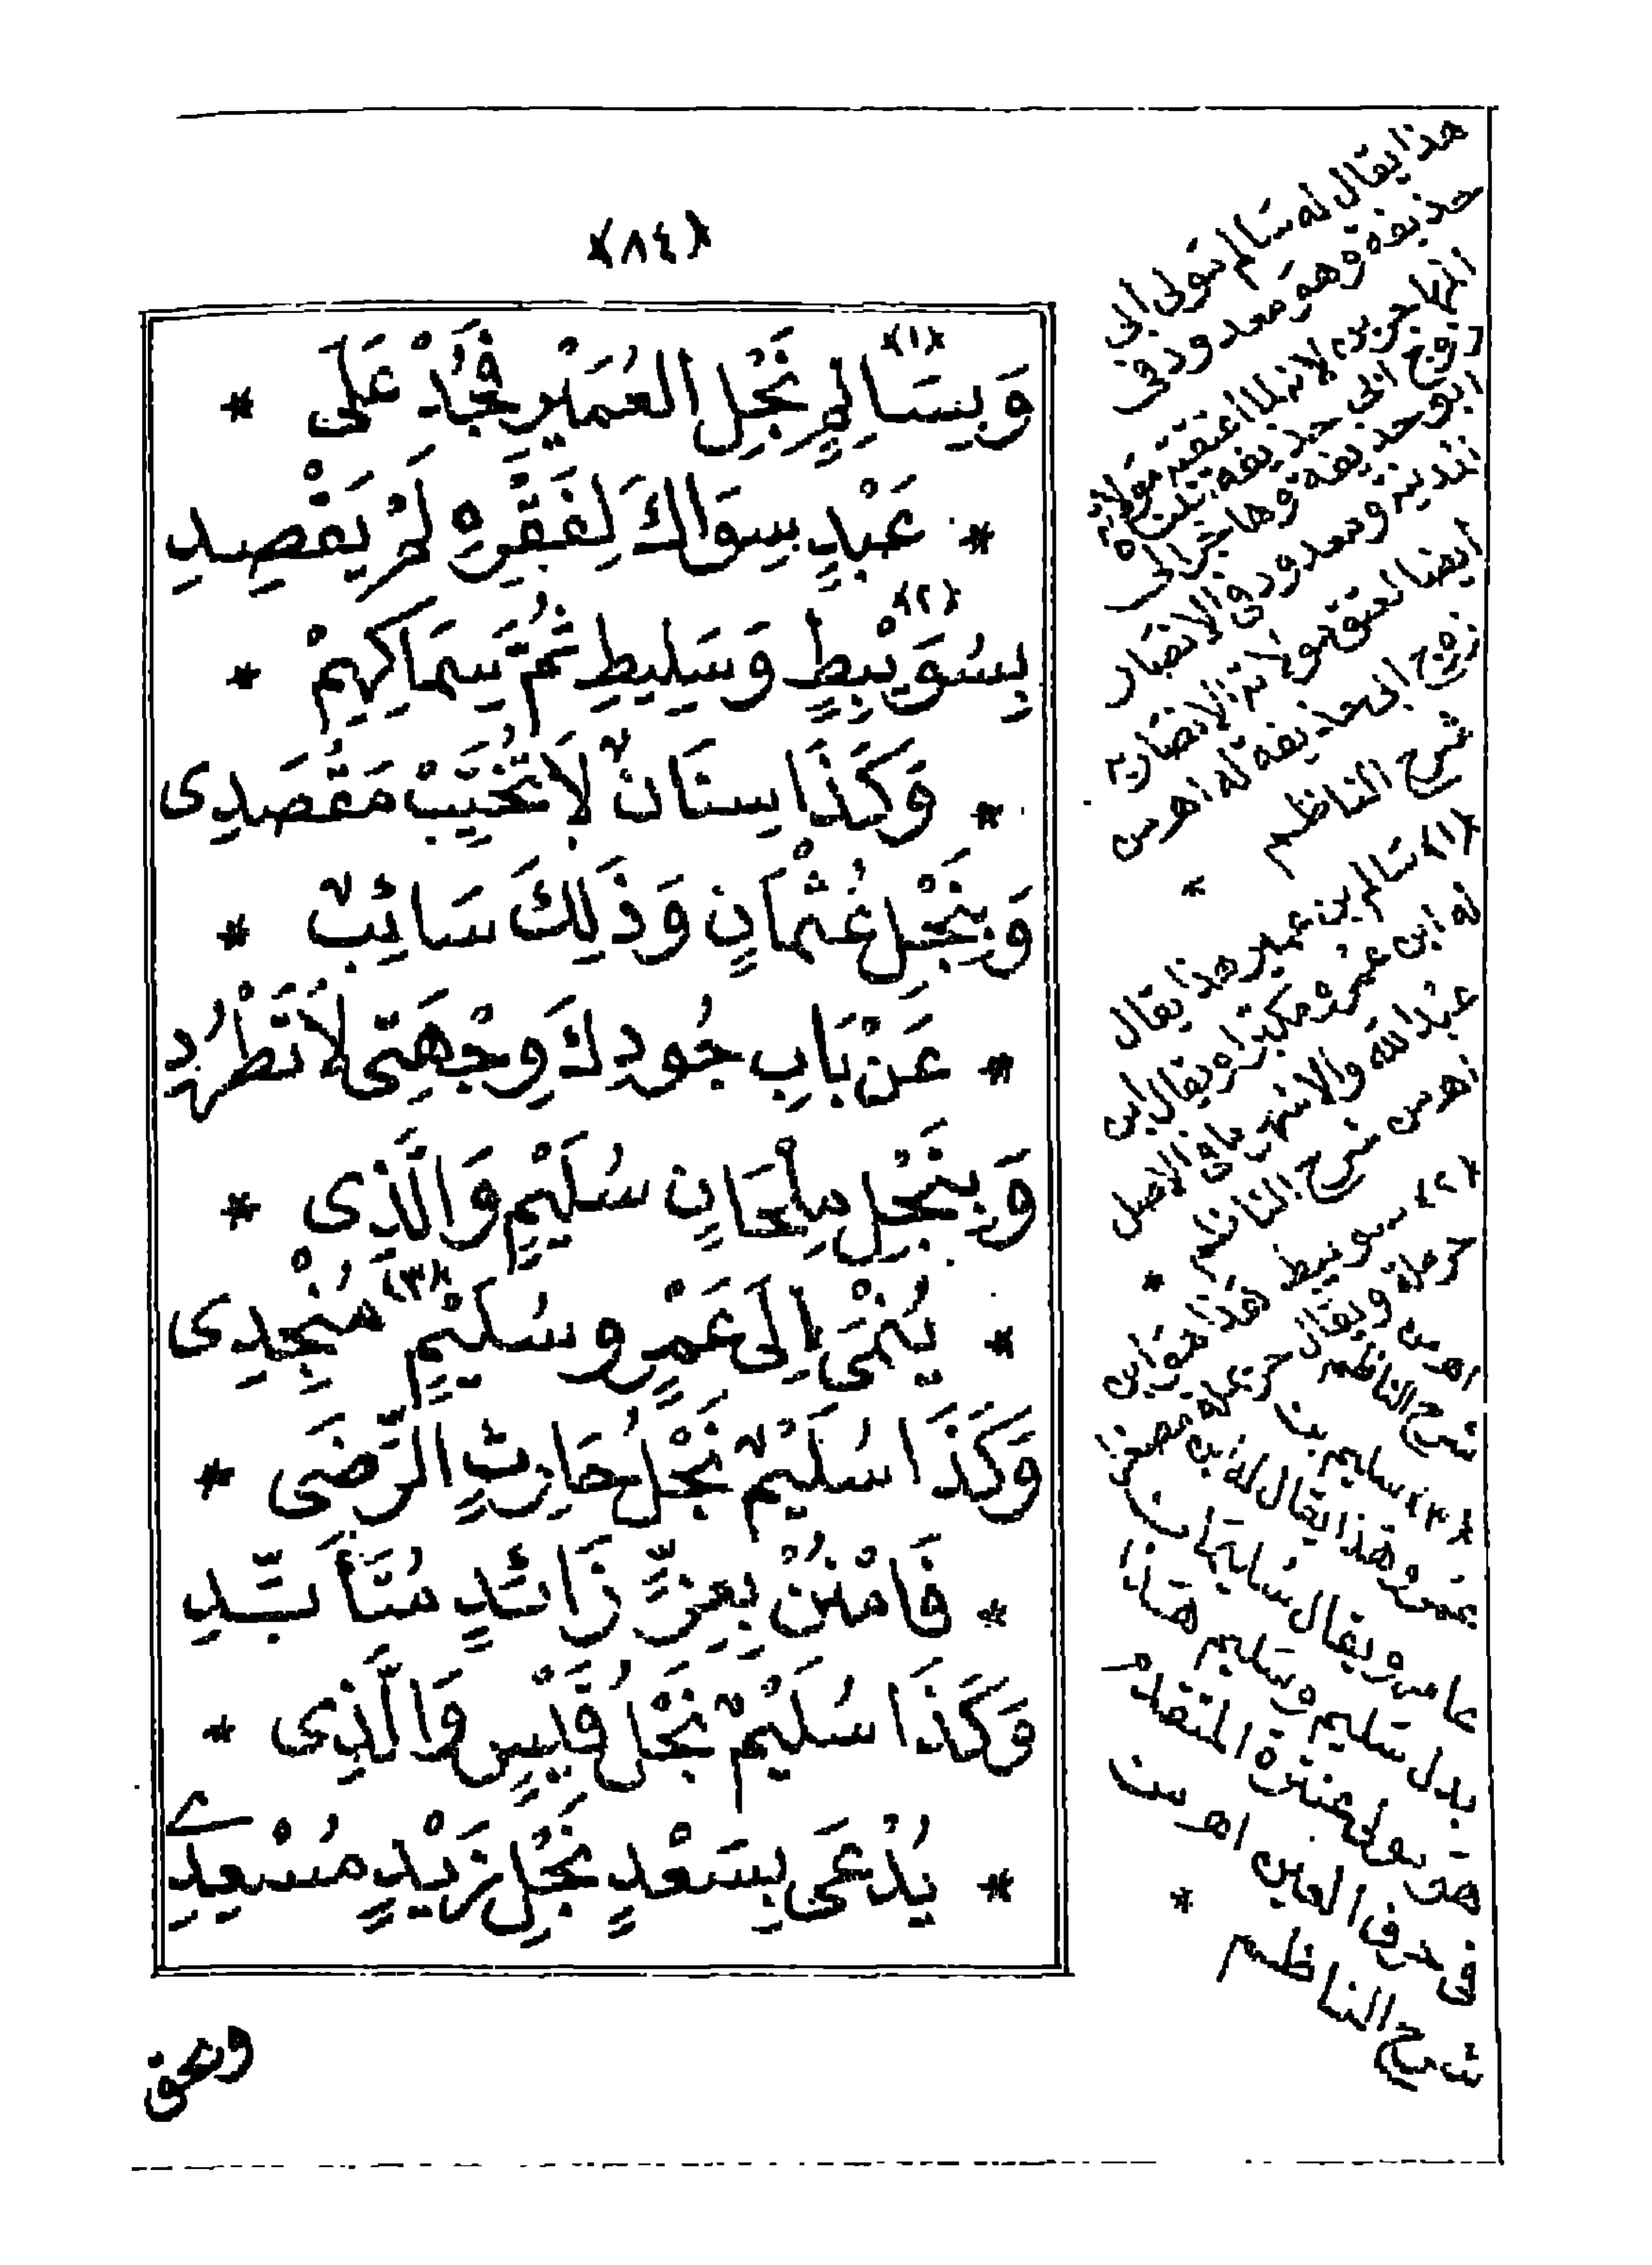 ﴿٨٤﴾
وَبِسَالِمٍ نَجْلِ الْعُمَيْرِ فَجُدْ عَلَى *
* عَبْدٍ سِوَاكَ لِفَقْرِهِ لَمْ يَقْصِدِ
بِسُوَيْبِطٍ وَسَلِيطٍ ثُمَّ سِمَاكِهِمْ *
* وَكَذَا سِنَانٌ لَا تُخَيِّبْ مَقْصَدِى
وَبِنَجْلِ عُثْمَانٍ وَذَلِكَ سَائِبٌ *
* عَنْ بَابِ جُودِكَ وِجْهَتِى لَا تَطْرُدِ
وَبِنَجْلِ مِلْحَانٍ سُلَيْمٍ وَالَّذِى *
* يُنْمَى اِلَى عَمْرٍو سُلَيْمٍ (٣) مُنْجِدِى
وَكَذَا سُلَيْمٌ نَجْلُ حَارِثٍ الرِّضَى *
* فَامْنُنْ بِعِزٍّ زَائِدٍ مُتَأَبِّدِ
وَكَذَا سُلَيْمٌ نَجْلُ قَيْسٍ وَالَّذِى *
* يُدْعَى بِسَعْدٍ نَجْلِ زَيْدٍ مُسْعِدِ
هذا يقال له سالم مولى ابى
حذيفة وهو معدود فى
المهاجرين لانه لما اعتقته مولاته
زوج ابى حذيفة تبناه
ابو حذيفة وهاجر الى
المدينة ومعدود فى الانصار
ايضا لعتق مولاته الانصارية
زوج ابى حذيفة له اهـ من
شرح الناظم *
(١) سالم بن عمير هذا يقال
له ابن عمرو مكبرا ويقال ابن
عبد الله والاشهر ما فى الاصل
اهـ من شرح الناظم *
(٢) سويبط هذا هو ابن
حرملة ويقال حريملة مصغرا
اهـ من شرح الناظم
(٣) سليم بن
عمرو هذا يقال له ابن
عامر ويقال سليمان
بدل سليم وسليم هذا
هو مولى عنترة المتقدم
فى حرف العين اهـ من
شرح الناظم *
وبحق